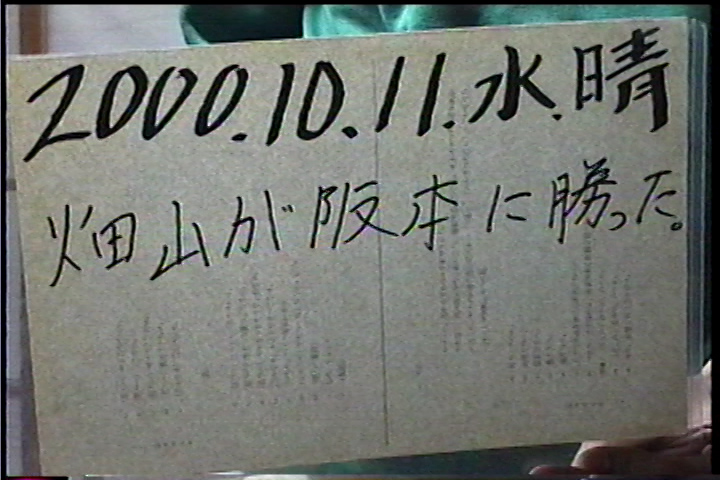 2000.10.11.水.晴
畑山が阪本に勝った。